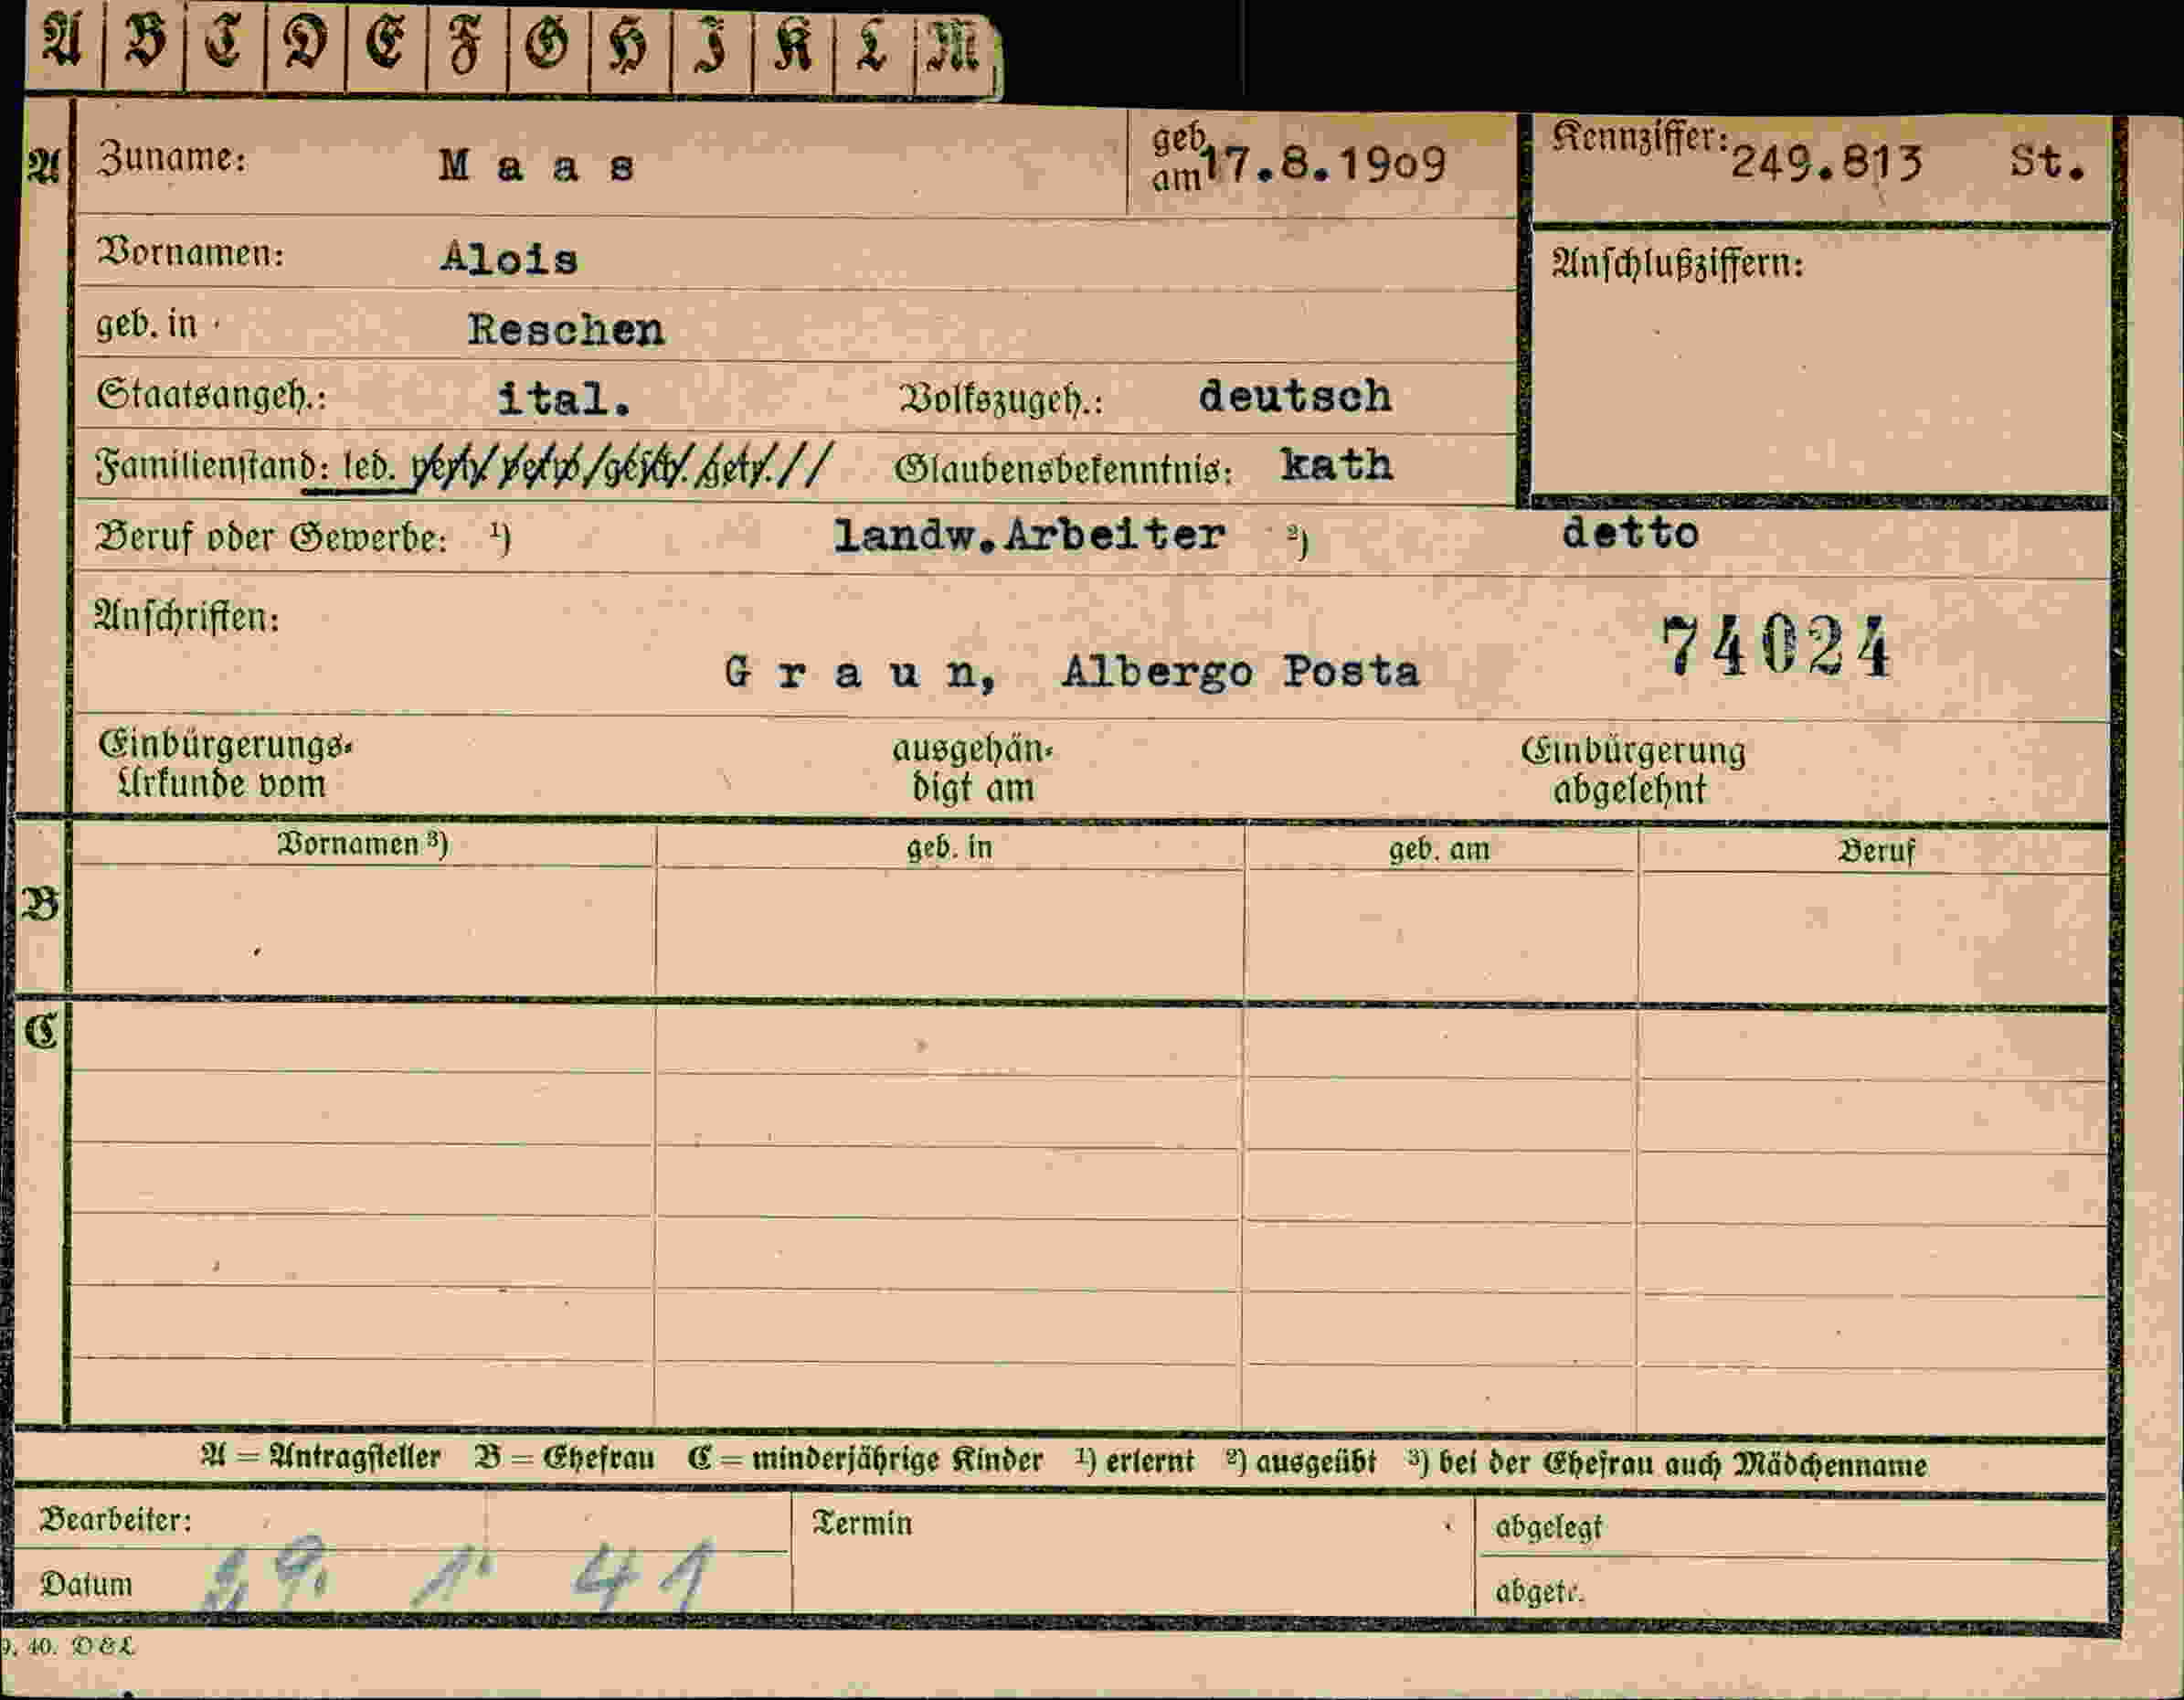 A B C D E F G H I K L M
A Zuname: Maas geb. am 17.8.1909 Kennziffer: 249.813 St.
Vornamen: Alois Anschlußziffern:
geb. in Reschen
Staatsangeh.: ital. Volkszugeh.: deutsch
Familienstand: led. verh. verw. gesch. getr. Glaubensbekenntnis: kath
Beruf oder Gewerbe: ¹) landw.Arbeiter ²) detto
Anschriften: 74024
Graun, Albergo Posta
Einbürgerungs- ausgehän- Einbürgerung
Urkunde vom digt am abgelehnt
Vornamen ³) geb. in geb. am Beruf
B
C
A = Antragsteller B = Ehefrau C = minderjährige Kinder ¹) erlernt ²) ausgeübt ³) bei der Ehefrau auch Mädchenname
Bearbeiter: Termin abgelegt
Datum 29. 1. 41 abgetr.
9. 40. D&L